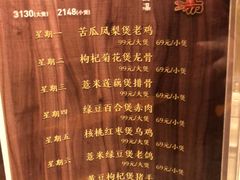 3130(大煲) 2148(小煲)
星期一 苦瓜凤梨煲老鸡
99元/大煲 69元/小煲
星期二 枸杞菊花煲龙骨
99元/大煲 69元/小煲
星期三 薏米莲藕煲排骨
99元/大煲 69元/小煲
星期四 绿豆百合煲赤肉
99元/大煲 69元/小煲
星期五 核桃红枣煲乌鸡
99元/大煲 69元/小煲
星期六 薏米绿豆煲老鸽
99元/大煲 69元/小煲
黄豆枸杞煲猪手